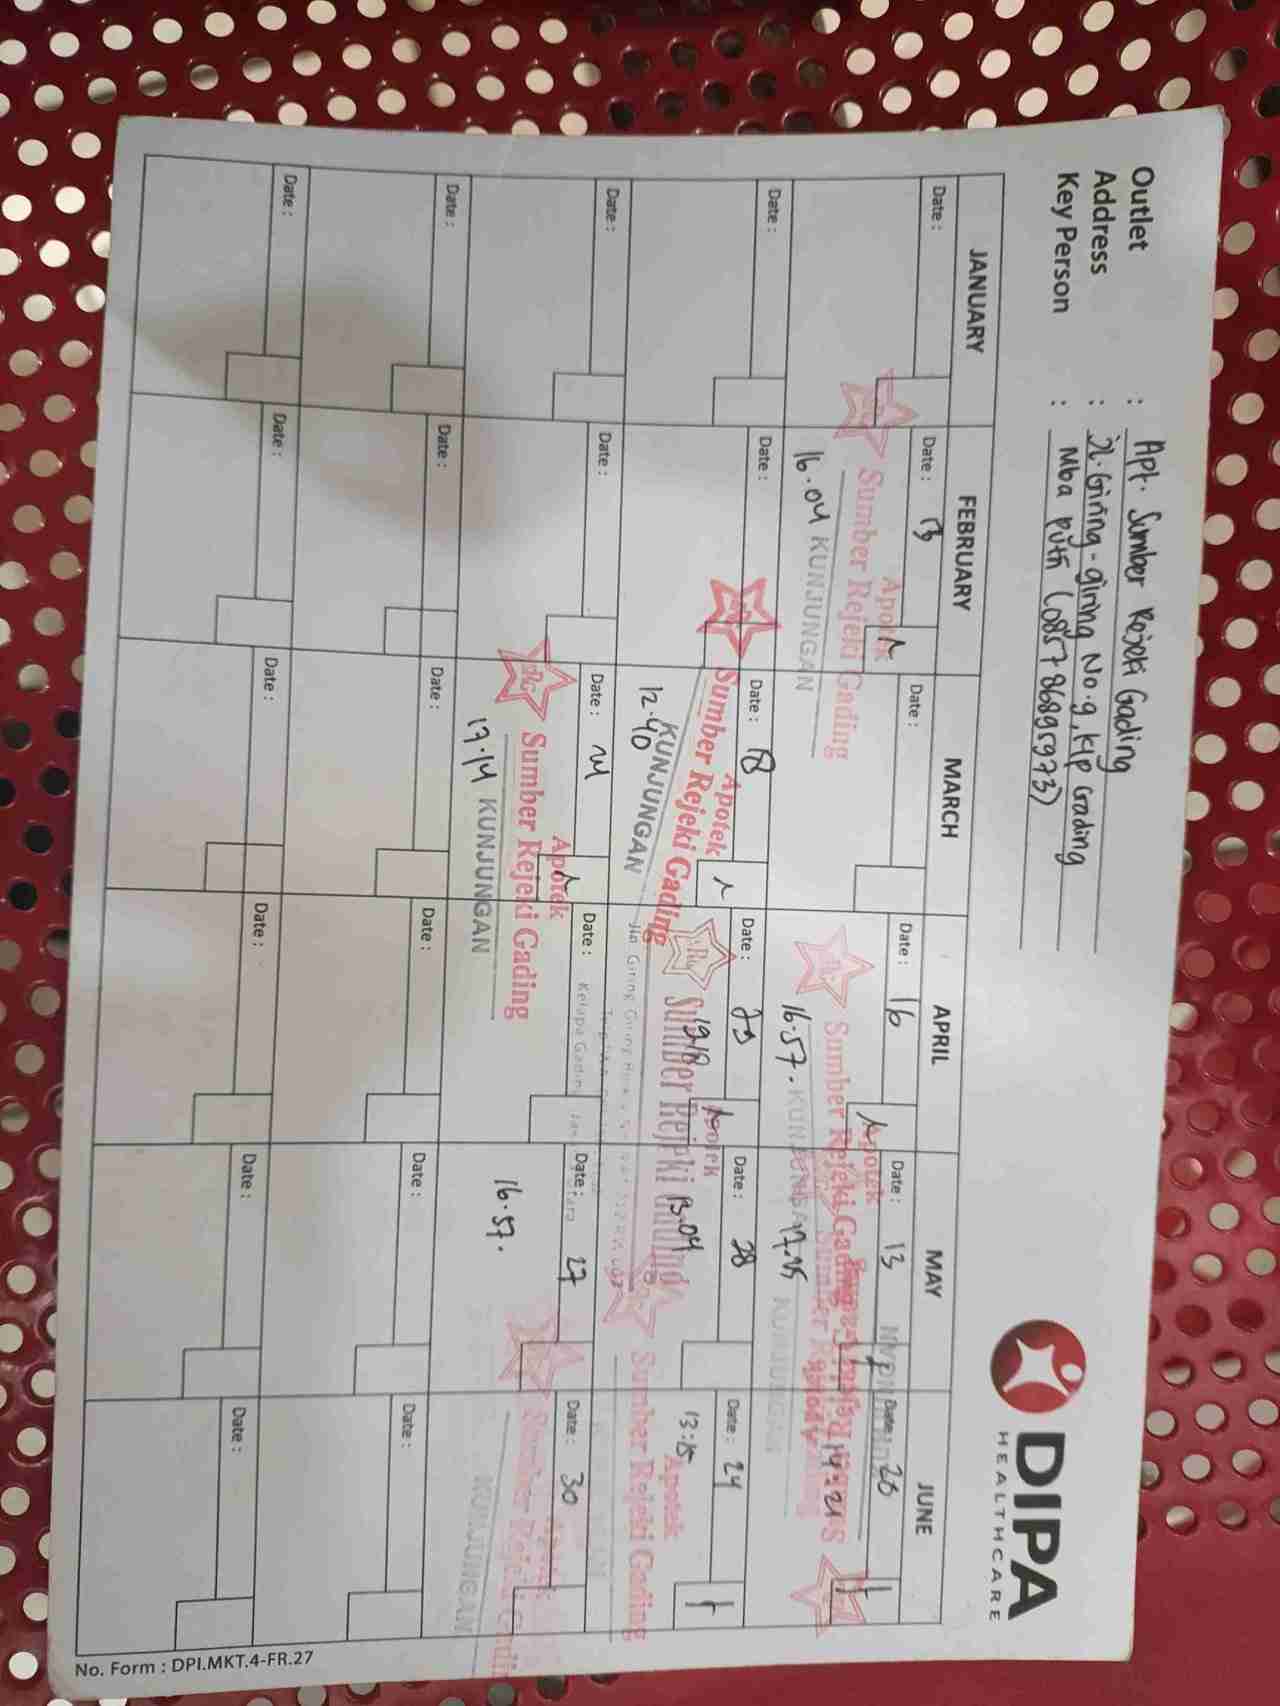 DIPA
HEALTHCARE
Outlet : Apt. Sumber Rejeki Gading
Address : Jl. Giring-giring No.9, Klp Gading
Key Person : Mba Putri (085786895973)
JANUARY FEBRUARY MARCH APRIL MAY JUNE
Date : Date : 13 Date : Date : 16 Date : 13 Date : 20
Apotek
Sumber Rejeki Gading
16.04 KUNJUNGAN
Apotek
Sumber Rejeki Gading
16.57. KUNJUNGAN
KUNJUNGAN
14:21
Date : Date : Date : 18 Date : Date : 28 Date : 24
Apotek
Sumber Rejeki Gading
12.40 KUNJUNGAN
Apotek
Sumber Rejeki Gading
13.04
13:15
Apotek
Sumber Rejeki Gading
Date : Date : Date : Date : Date : 27 Date : 30
Apotek
Sumber Rejeki Gading
17.14 KUNJUNGAN
16.57.
Sumber Rejeki Gading
KUNJUNGAN
Date : Date : Date : Date : Date : Date :
Date : Date : Date : Date : Date : Date :
No. Form : DPI.MKT.4-FR.27